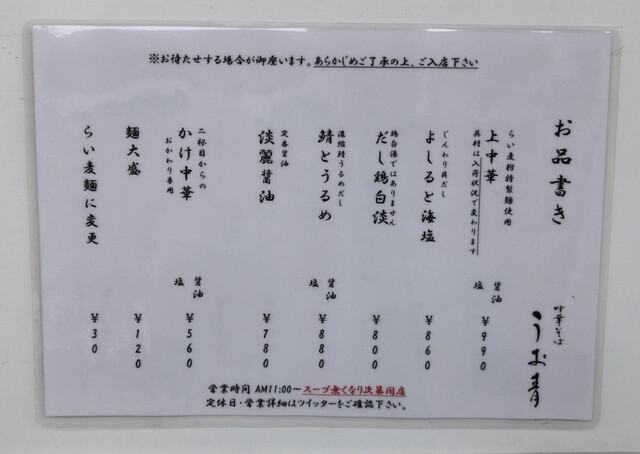 ※お待たせする場合が御座います。あらかじめご了承の上、ご入店下さい
お品書き
中華そば
うお青
らい麦粉特製麺使用
上中華
具材は入荷状況で変わります
醤油
塩
¥990
じんわり貝だし
よしるど海塩
¥860
鶏白湯ではありません
だし鶏白淡
¥800
濃縮鯖うるめだし
鯖とうるめ
醤油
塩
¥880
定番醤油
淡麗醤油
¥780
二杯目からの
かけ中華
おかわり専用
醤油
塩
¥560
麺大盛
¥120
らい麦麺に変更
¥30
営業時間 AM11:00～スープ無くなり次第閉店
定休日・営業詳細はツイッターをご確認下さい。